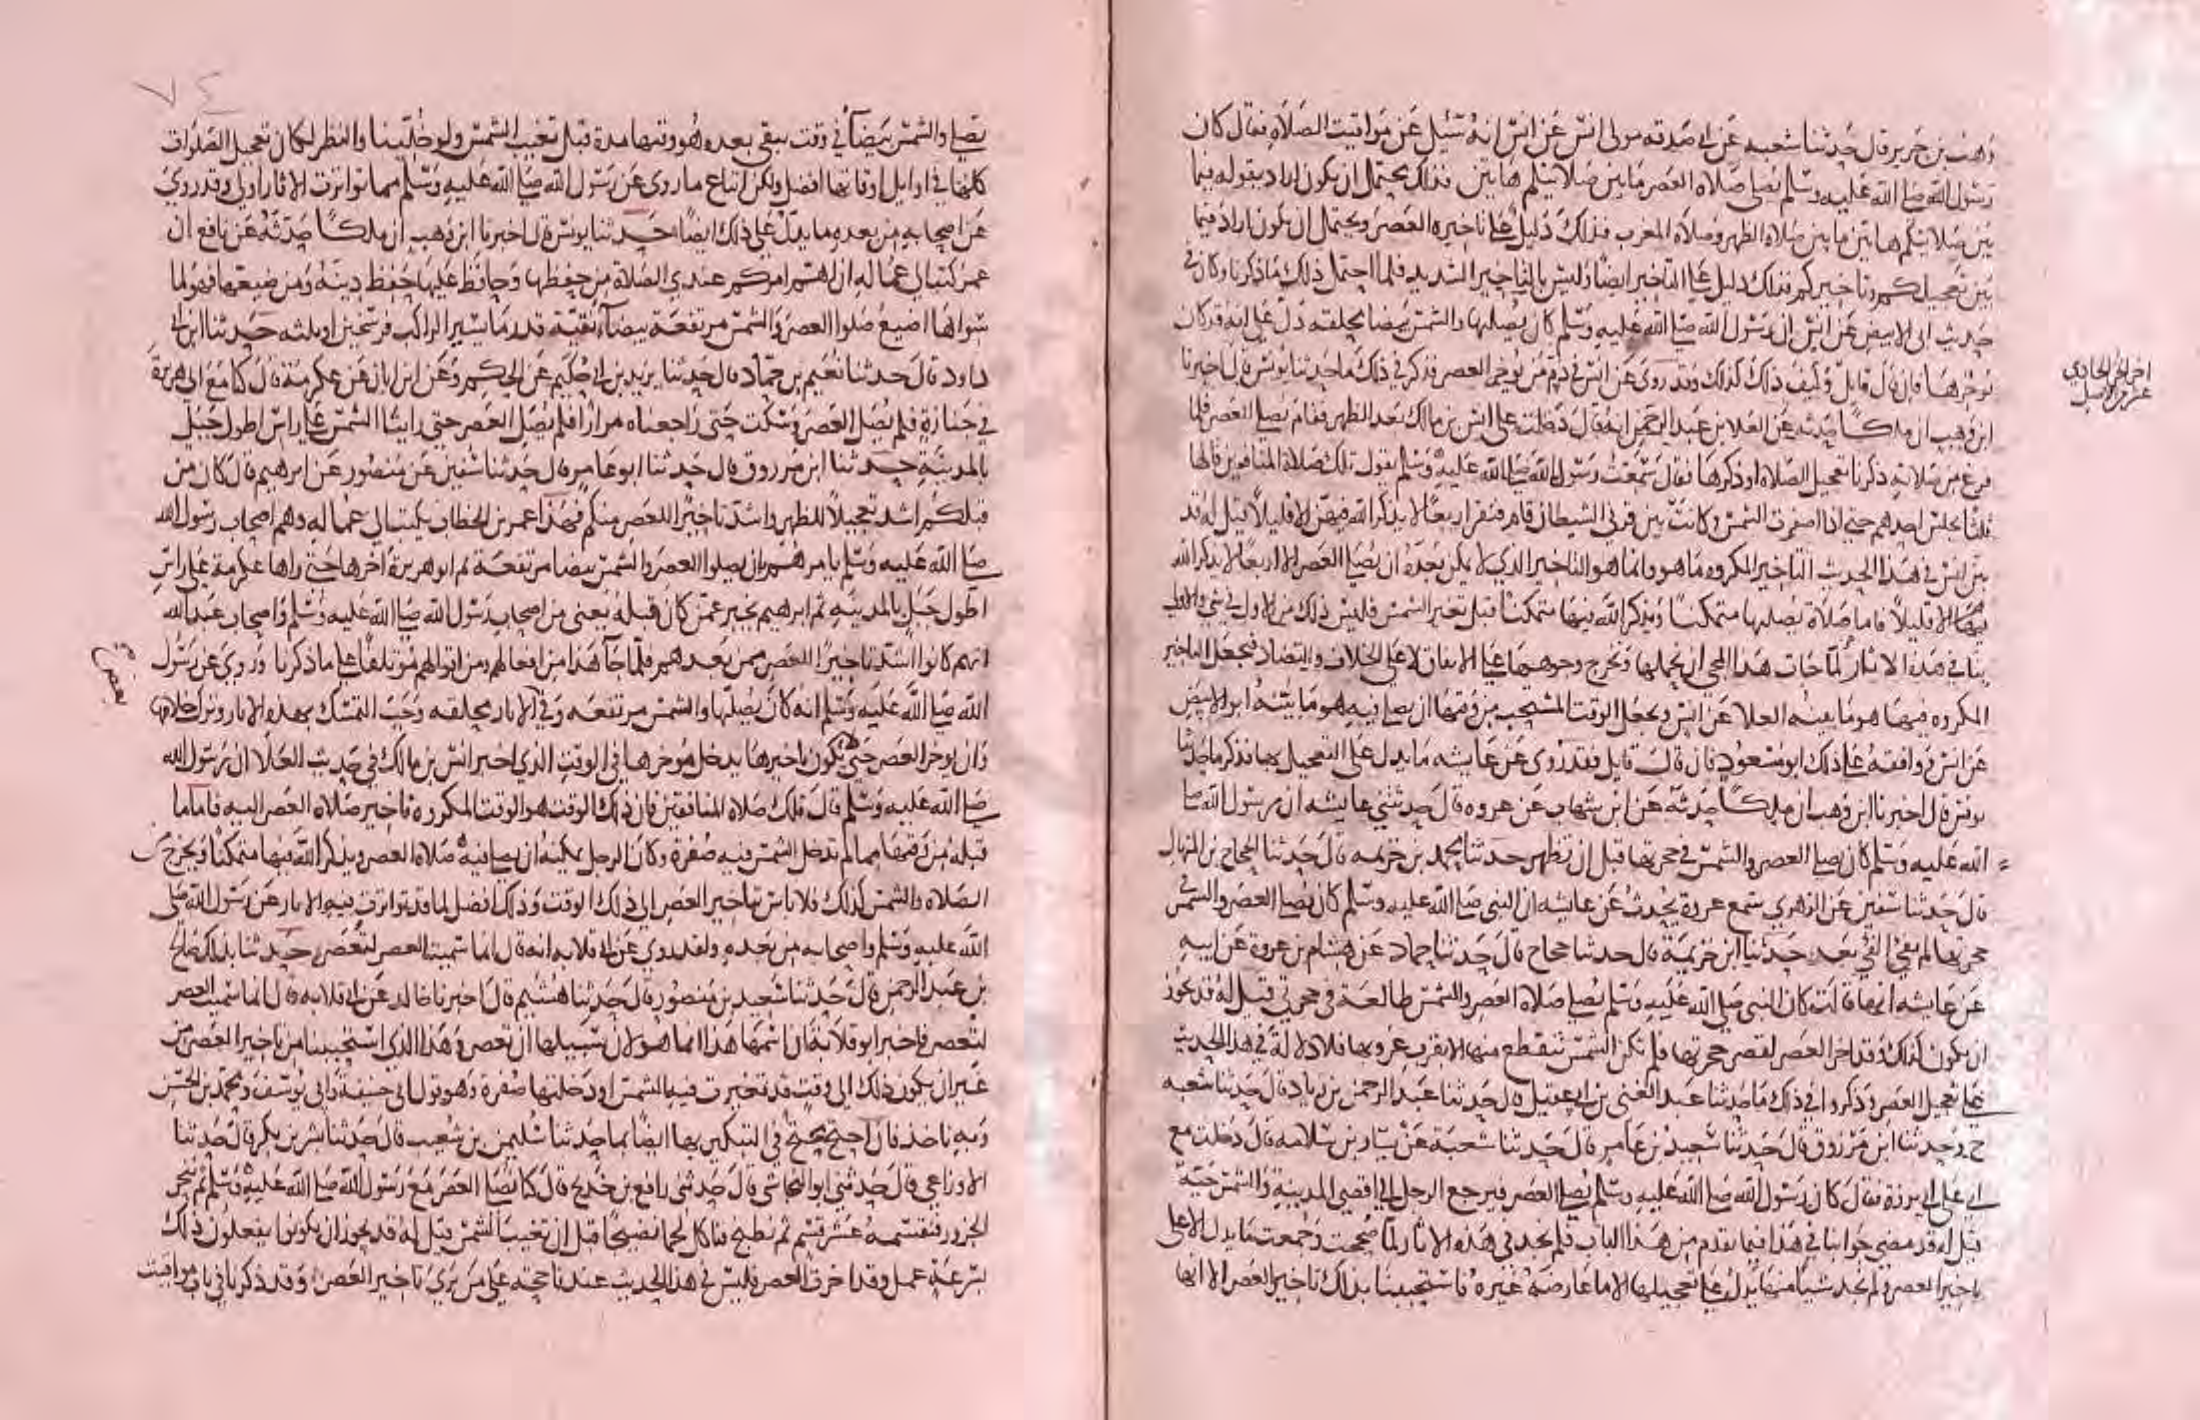 وهب بن جرير قال حدثنا شعبه عن ابي صدقه مولى انس عن انس انه سئل عن مواقيت الصلاة فقال كان
رسول الله صلى الله عليه وسلم يصلي صلاه العصر ما بين صلاتيكم هاتين فذلك يحتمل ان يكون اراد بقوله فيما
بين صلاتيكم هاتين ما بين صلاه الظهر وصلاة المغرب فذلك دليل على تاخيره العصر ويحتمل ان يكون اراد فيما
بين تعجيلكم وتاخيركم فذلك دليل على التاخير ايضا وليس بالتاخير الشديد فلما احتمل ذلك ما ذكرنا وكان في
حديث ابي الابيض عن انس ان رسول الله صلى الله عليه وسلم كان يصليها والشمس بيضا محلقه دل على انه قد كان
يؤخرها فان قال قايل وكيف ذلك كذلك وقد روي عن انس في ذم من يؤخر العصر فذكر في ذلك ما حدثنا يونس قال اخبرنا
ابن وهب ان ملكا حدثه عن العلا بن عبد الرحمن انه قال دخلت على انس بن مالك بعد الظهر فقام يصلي العصر فلما
فرغ من صلاته ذكرنا تعجيل الصلاه او ذكرها فقال سمعت رسول الله صلى الله عليه وسلم يقول تلك صلاة المنافقين قالها
ثلثا يجلس احدهم حتى اذا اصفرت الشمس وكانت بين قرني الشيطان قام فنقر اربعا لا يذكر الله فيهن الا قليلا قيل له قد
بين انس في هذا الحديث التاخير المكروه ما هو وانما هو التاخير الذي لا يمكن بعده ان يصلي العصر الا اربعا لا يذكر الله
فيها الا قليلا فاما صلاة يصليها متمكنا ويذكر الله فيها متمكنا قبل تغير الشمس فليس ذلك من الاول في شي والاولى
بنا في هذه الاثار لما جات هذا المجي ان نحملها ونخرج وجوهها على الاتفاق لا على الخلاف والتضاد فنجعل التاخير
المكروه فيها هو ما بينه العلا عن انس ونجعل الوقت المستحب من وقتها ان يصلي فيه هو ما بينه ابو الابيض
عن انس ووافقه على ذلك ابو مسعود فان قال قايل فقد روي عن عايشه ما يدل على التعجيل بها فذكر ما حدثنا
يونس قال اخبرنا ابن وهب ان ملكا حدثه عن ابن شهاب عن عروه قال حدثتني عايشه ان رسول الله صلى
الله عليه وسلم كان يصلي العصر والشمس في حجرتها قبل ان تظهر حدثنا محمد بن خزيمه قال حدثنا الحجاج بن المنهال
قال حدثنا سفين عن الزهري سمع عروة يحدث عن عايشه ان النبي صلى الله عليه وسلم كان يصلي العصر والشمس في
حجرتها لم يفئ الفي بعد حدثنا ابن خزيمة قال حدثنا حجاج قال حدثنا حماد عن هشام بن عروة عن ابيه
عن عايشه انها قالت كان النبي صلى الله عليه وسلم يصلي صلاة العصر والشمس طالعة في حجرتي قيل له قد يجوز
ان يكون كذلك وقد اخر العصر لقصر حجرتها فلم تكن الشمس تنقطع منها الا بقرب غروبها فلا دلالة في هذا الحديث
على تعجيل العصر وذكروا في ذلك ما حدثنا عبد الغني بن ابي عقيل قال حدثنا عبد الرحمن بن زياد قال حدثنا شعبه
ح وحدثنا ابن مرزوق قال حدثنا سعيد بن عامر قال حدثنا شعبة عن سيار بن سلامه قال دخلت مع
ابي على ابي برزة فقال كان رسول الله صلى الله عليه وسلم يصلي العصر فيرجع الرجل الى اقصى المدينة والشمس حية
قيل له قد مضى جوابنا في هذا فيما تقدم من هذا الباب فلم نجد في هذه الاثار لما صححت وجمعت ما يدل الا على
تاخير العصر ولم نجد شيا منها يدل على تعجيلها الا ما عارضه غيره فاستحببنا بذلك تاخير العصر الا انها
اخر الجز الحادي
عشر من الاصل
٧٤
تصلى والشمس بيضآ في وقت يبقى بعده من وقتها مدة قبل تغيب الشمس ولو خلينا والنظر لكان تعجيل الصلوات
كلها في اوايل اوقاتها افضل ولكن اتباع ما روي عن رسول الله صلى الله عليه وسلم مما تواترت الاثار اولى وقد روي
عن اصحابه من بعده ما يدل على ذلك ايضا حدثنا يونس قال اخبرنا ابن وهب ان ملكا حدثه عن نافع ان
عمر كتب الى عماله ان اهم امركم عندي الصلاة من حفظها وحافظ عليها حفظ دينه ومن ضيعها فهو لما
سواها اضيع صلوا العصر والشمس مرتفعة بيضآء نقية قدر ما يسير الراكب فرسخين او ثلثه حدثنا ابن ابي
داود قال حدثنا نعيم بن حماد قال حدثنا يزيد بن ابي حكيم عن الحكم وعن ابن ابان عن عكرمة قال كنا مع ابي هريرة
في جنازة فلم يصل العصر وسكت حتى راجعناه مرارا فلم يصل العصر حتى راينا الشمس على راس اطول جبل
بالمدينة حدثنا ابن مرزوق قال حدثنا ابو عامر قال حدثنا سفين عن منصور عن ابرهيم قال كان من
قبلكم اشد تعجيلا للظهر واشد تاخيرا للعصر منكم فهذا عمر بن الخطاب يكتب الى عماله وهم اصحاب رسول الله
صلى الله عليه وسلم يامرهم بان يصلوا العصر والشمس بيضا مرتفعة ثم ابو هريرة اخرها حتى راها عكرمة على راس
اطول جبل بالمدينه ثم ابرهيم يخبر عمن كان قبله يعني من اصحاب رسول الله صلى الله عليه وسلم واصحاب عبد الله
انهم كانوا اشد تاخيرا للعصر ممن بعدهم فلما جآ هذا من افعالهم ومن اقوالهم مؤتلفا على ما ذكرنا وروي عن رسول
الله صلى الله عليه وسلم انه كان يصليها والشمس مرتفعه وفي الاثار محلقه وجب التمسك بهذه الاثار وترك خلافها
بعض
وان يؤخر العصر حتى يكون تاخيرها يدخل مؤخرها في الوقت الذي اخبر انس بن مالك في حديث العلا ان رسول الله
صلى الله عليه وسلم قال تلك صلاة المنافقين فان ذلك الوقت هو الوقت المكروه تاخير صلاه العصر اليه فاما ما
قبله من وقتها مما لم تدخل الشمس فيه صفرة وكان الرجل يمكنه ان يصلي فيه صلاة العصر ويذكر الله فيها متمكنا ويخرج من
الصلاه والشمس كذلك فلا باس بتاخير العصر الى ذلك الوقت وذلك افضل لما قد تواترت فيه الاثار عن رسول الله صلى
الله عليه وسلم واصحابه من بعده ولقد روي عن ابي قلابه انه قال انما سميت العصر لتعصر حدثنا بذلك صالح
بن عبد الرحمن قال حدثنا سعيد بن منصور قال حدثنا هشيم قال اخبرنا خالد عن ابي قلابه قال انما سميت العصر
لتعصر فاخبر ابو قلابة ان اسمها هذا انما هو لان سبيلها ان تعصر وهذا الذي استحببنا من تاخير العصر من
غير ان يكون ذلك الى وقت قد تغيرت فيه الشمس او دخلتها صفرة وهو قول ابي حنيفة وابي يوسف ومحمد بن الحسن
وبه ناخذ فان احتج محتج في التبكير بها ايضا بما حدثنا سليمن بن شعيب قال حدثنا بشر بن بكر قال حدثنا
الاوزاعي قال حدثني ابو النجاشي قال حدثني رافع بن خديج قال كنا نصلي العصر مع رسول الله صلى الله عليه وسلم ثم ننحر
الجزور فنقسمه عشر قسم ثم نطبخ فناكل لحما نضيجا قبل ان تغيب الشمس قيل له قد يجوز ان يكونوا يفعلون ذلك
بسرعة عمل وقد اخرت العصر فليس في هذا الحديث عندنا حجة على من يرى تاخير العصر وقد ذكرنا في باب مواقيت